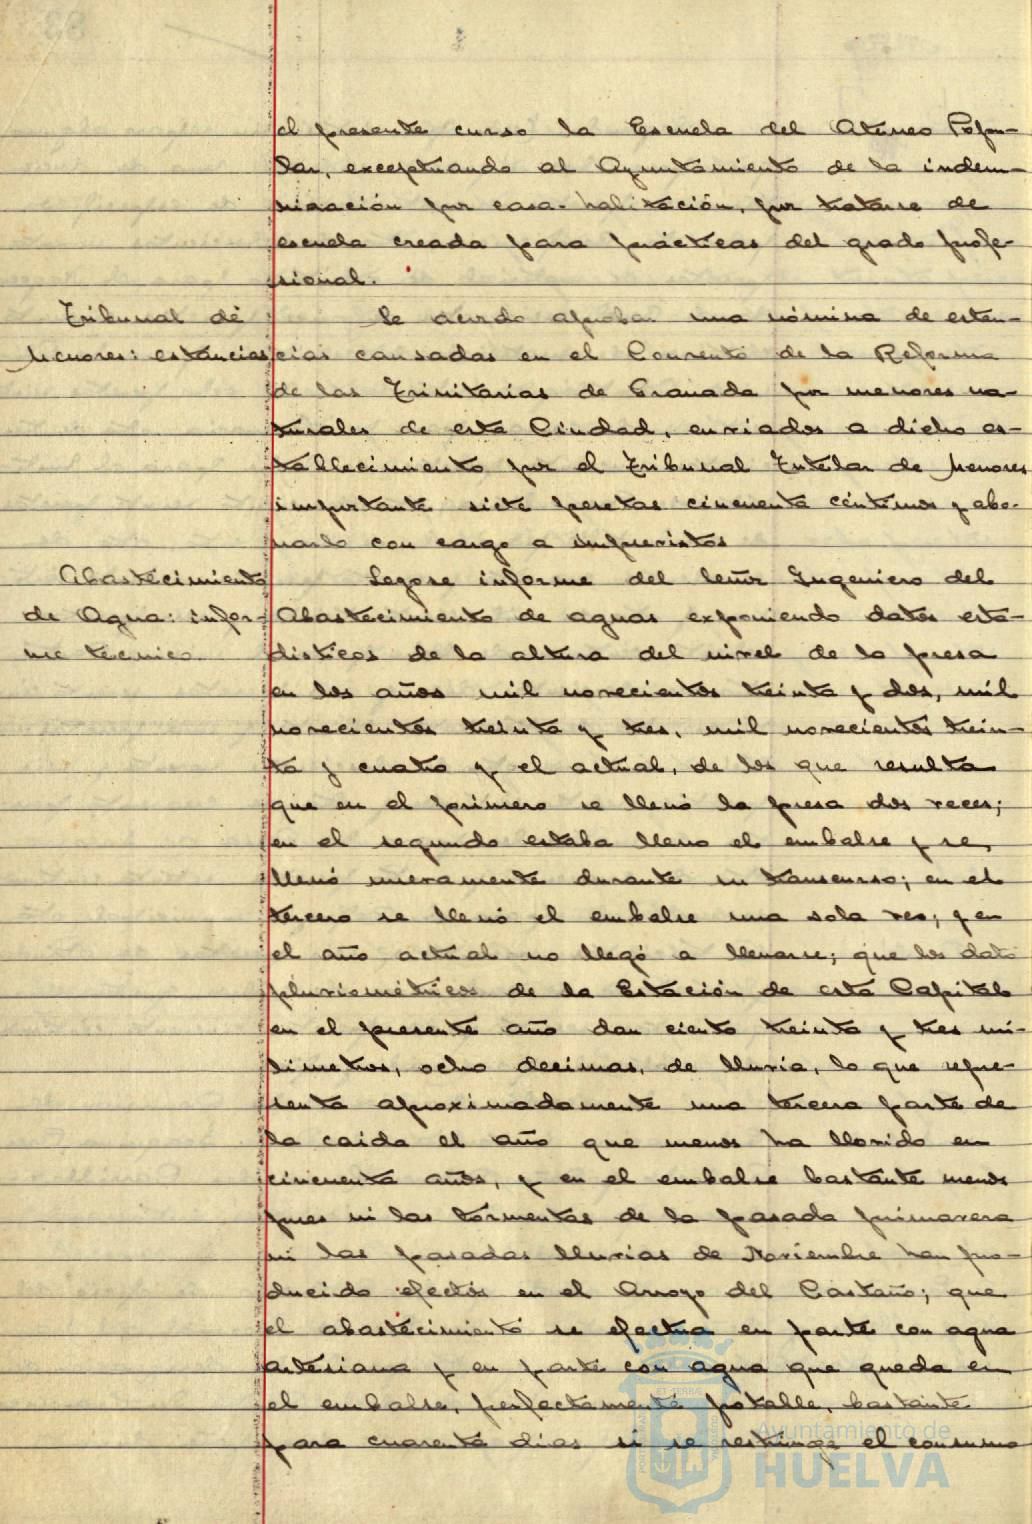 el presente curso la Escuela del Ateneo Popu-
lar, exceptuando al Ayuntamiento de la indem-
nización por casa-habitación, por tratarse de
escuela creada para prácticas del grado profe-
sional.
Tribunal de
Menores: estancias
Se acordo aprobar una nómina de estan-
cias causadas en el Convento de la Reforma
de las Trinitarias de Granada por menores na-
turales de esta Ciudad, enviados a dicho es-
tablecimiento por el Tribunal Tutelar de Menores
importante siete pesetas cincuenta céntimos y abo-
narlo con cargo a imprevistos
Abastecimiento
de Agua: infor-
me tecnico.
Leyose informe del Señor Ingeniero del
Abastecimiento de aguas exponiendo datos esta-
disticos de la altura del nivel de la presa
en los años mil novecientos treinta y dos, mil
novecientos treinta y tres, mil novecientos trein-
ta y cuatro y el actual, de los que resulta
que en el primero se llenó la presa dos veces;
en el segundo estaba lleno el embalse y se
llenó nuevamente durante su transcurso; en el
tercero se llenó el embalse una sola vez; y en
el año actual no llegó a llenarse; que los dato
pluviométricos de la Estación de esta Capital
en el presente año dan ciento treinta y tres mi-
limetros, ocho decimas, de lluvia, lo que repre-
senta aproximadamente una tercera parte de
la caida el año que menos ha llovido en
cincuenta años, y en el embalse bastante menos
pues ni las tormentas de la pasada primavera
ni las pasadas lluvias de Noviembre han pro-
ducido efectos en el Arroyo del Castaño; que
el abastecimiento se efectua en parte con agua
artesiana y en parte con agua que queda en
el embalse, perfectamente potable, bastante
para cuarenta dias si se restringe el consumo
Ayuntamiento de
HUELVA